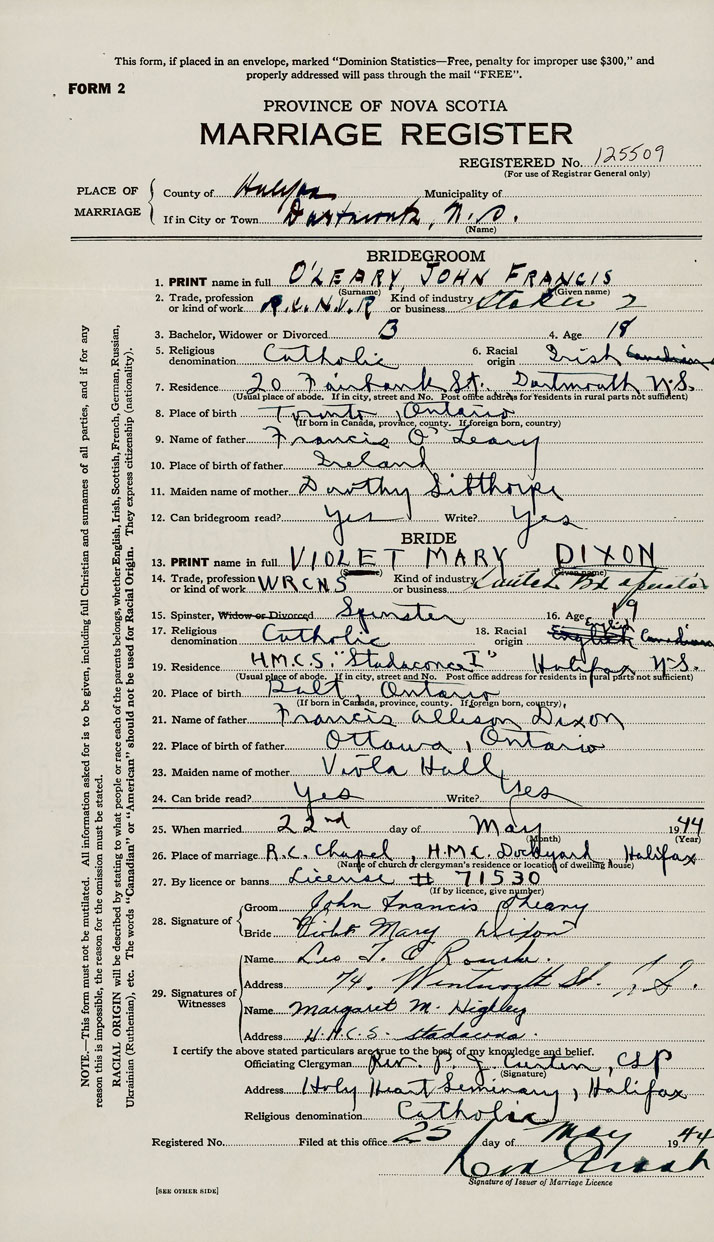 This form, if placed in an envelope, marked “Dominion Statistics—Free, penalty for improper use $300,” and
properly addressed will pass through the mail “FREE”.
FORM 2
PROVINCE OF NOVA SCOTIA
MARRIAGE REGISTER
REGISTERED No. 125509
(For use of Registrar General only)
PLACE OF MARRIAGE
County of Halifax Municipality of
If in City or Town Dartmouth, N.S.
(Name)
BRIDEGROOM
1. PRINT name in full O'LEARY, JOHN FRANCIS
(Surname) (Given name)
2. Trade, profession or kind of work R.C.N.V.R Kind of industry or business Stoker 2
3. Bachelor, Widower or Divorced B 4. Age 18
5. Religious denomination Catholic 6. Racial origin Irish Canadian
7. Residence 20 Fairbank St. Dartmouth N.S.
(Usual place of abode. If in city, street and No. Post office address for residents in rural parts not sufficient)
8. Place of birth Toronto, Ontario
(If born in Canada, province, county. If foreign born, country)
9. Name of father Francis O'Leary
10. Place of birth of father Ireland
11. Maiden name of mother Dorothy Sibthorpe
12. Can bridegroom read? Yes Write? Yes
BRIDE
13. PRINT name in full VIOLET MARY DIXON
(Surname) (Given name)
14. Trade, profession or kind of work WRCNS Kind of industry or business
15. Spinster, Widow or Divorced Spinster 16. Age 19
17. Religious denomination Catholic 18. Racial origin English English Canadian
19. Residence H.M.C.S. "Stadacona I" Halifax N.S.
(Usual place of abode. If in city, street and No. Post office address for residents in rural parts not sufficient)
20. Place of birth Galt, Ontario
(If born in Canada, province, county. If foreign born, country)
21. Name of father Francis Allison Dixon
22. Place of birth of father Ottawa, Ontario
23. Maiden name of mother Viola Hall
24. Can bride read? Yes Write? Yes
25. When married 22nd day of May 1944
(Month) (Year)
26. Place of marriage R.C. Chapel, H.M.C. Dockyard, Halifax
(Name of church or clergyman's residence or location of dwelling house)
27. By licence or banns License # 71530
(If by licence, give number)
28. Signature of
Groom John Francis O'Leary
Bride Violet Mary Dixon
29. Signatures of Witnesses
Name Leo O'Rourke
Address 74 Wentworth St.
Name Margaret M. Highley
Address H.M.C.S. Stadacona.
I certify the above stated particulars are true to the best of my knowledge and belief.
Officiating Clergyman Rev. P. J. Curtin, CSP
(Signature)
Address Holy Heart Seminary, Halifax
Religious denomination Catholic
Registered No. Filed at this office 25 day of May 1944
Signature of Issuer of Marriage Licence
[SEE OTHER SIDE]
NOTE.—This form must not be mutilated. All information asked for is to be given, including full Christian and surnames of all parties, and if for any
reason this is impossible, the reason for the omission must be stated.
RACIAL ORIGIN will be described by stating to what people or race each of the parents belongs, whether English, Irish, Scottish, French, German, Russian,
Ukrainian (Ruthenian), etc. The words “Canadian” or “American” should not be used for Racial Origin. They express citizenship (nationality).